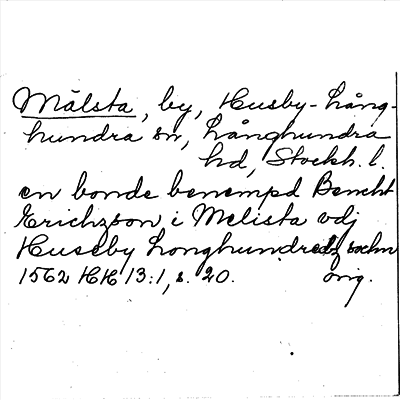 Målsta, by, Husby-Lång-
hundra sn, Långhundra
hd, Stockh. l.
en bonde benempd Bencht
Erichzson i Melista vdj
Huseby Longhundredz sochn
1562 HH 13:1, s. 20. orig.